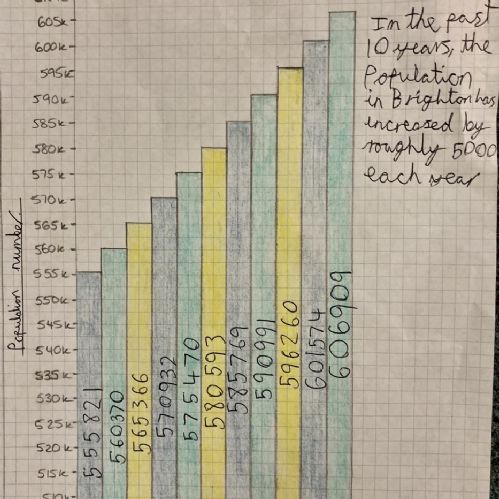 605k
600k
595k
590k
585k
580k
575k
570k
565k
560k
555k
550k
545k
540k
535k
530k
525k
520k
515k
Population number
555821
560370
565366
570932
575470
580593
585769
590991
596260
601574
606909
In the past
10 years, the
Population
in Brighton has
increased by
roughly 5000
each year